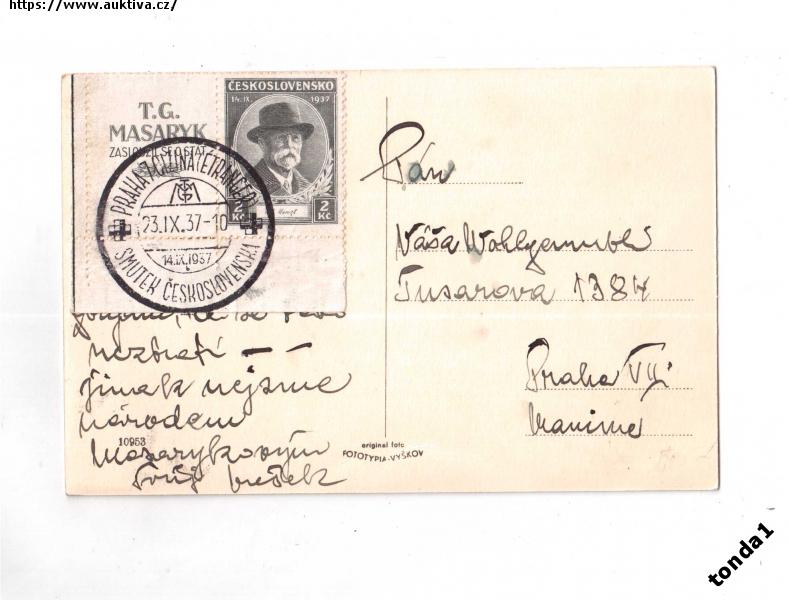 https://www.auktiva.cz/
T.G.
MASARYK
ZASLOUŽIL SE O STÁT
ČESKOSLOVENSKO
14. IX. 1937
2 Kč 2 Kč
PRAHA
23.IX.37-10
14.IX.1937
SMUTEK ČESKOSLOVENSKA
že se
neztratí — —
jinak nejsme
národem
10953
Masarykovým
Pán
Váša Wohlgemuth
Tusarova 1384
Praha VII
original foto
FOTOTYPIA-VYŠKOV
tonda1